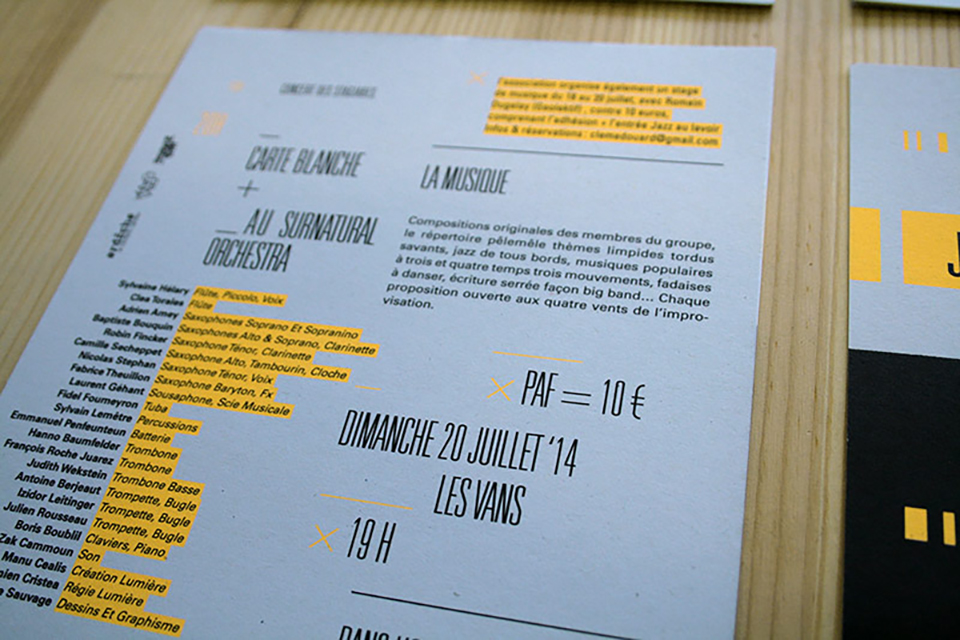 CONCERT DES STAGIAIRES
l'association organise également un stage
de musique du 16 au 20 juillet, avec Romain
Dugelay (Gaulekiif) , contre 10 euros,
comprenant l'adhésion + l'entrée Jazz au lavoir
infos & réservations : clemedouard@gmail.com
CARTE BLANCHE
+
_ AU SURNATURAL
ORCHESTRA
LA MUSIQUE
Compositions originales des membres du groupe,
le répertoire pêlemêle thèmes limpides tordus
savants, jazz de tous bords, musiques populaires
à trois et quatre temps trois mouvements, fadaises
à danser, écriture serrée façon big band... Chaque
proposition ouverte aux quatre vents de l'impro-
visation.
Sylvaine Hélary Flûte, Piccolo, Voix
Clea Torales Flûte
Adrien Amey Saxophones Soprano Et Sopranino
Baptiste Bouquin Saxophones Alto & Soprano, Clarinette
Robin Fincker Saxophone Ténor, Clarinette
Camille Secheppet Saxophone Alto, Tambourin, Cloche
Nicolas Stephan Saxophone Ténor, Voix
Fabrice Theuillon Saxophone Baryton, Fx
Laurent Géhant Sousaphone, Scie Musicale
Fidel Fourneyron Tuba
Sylvain Lemêtre Percussions
Emmanuel Penfeunteun Batterie
Hanno Baumfelder Trombone
François Roche Juarez Trombone
Judith Wekstein Trombone Basse
Antoine Berjeaut Trompette, Bugle
Izidor Leitinger Trompette, Bugle
Julien Rousseau Trompette, Bugle
Boris Boublil Claviers, Piano
Zak Cammoun Son
Manu Cealis Création Lumière
Cristea Régie Lumière
Sauvage Dessins Et Graphisme
PAF = 10 €
DIMANCHE 20 JUILLET '14
LES VANS
19 H
J